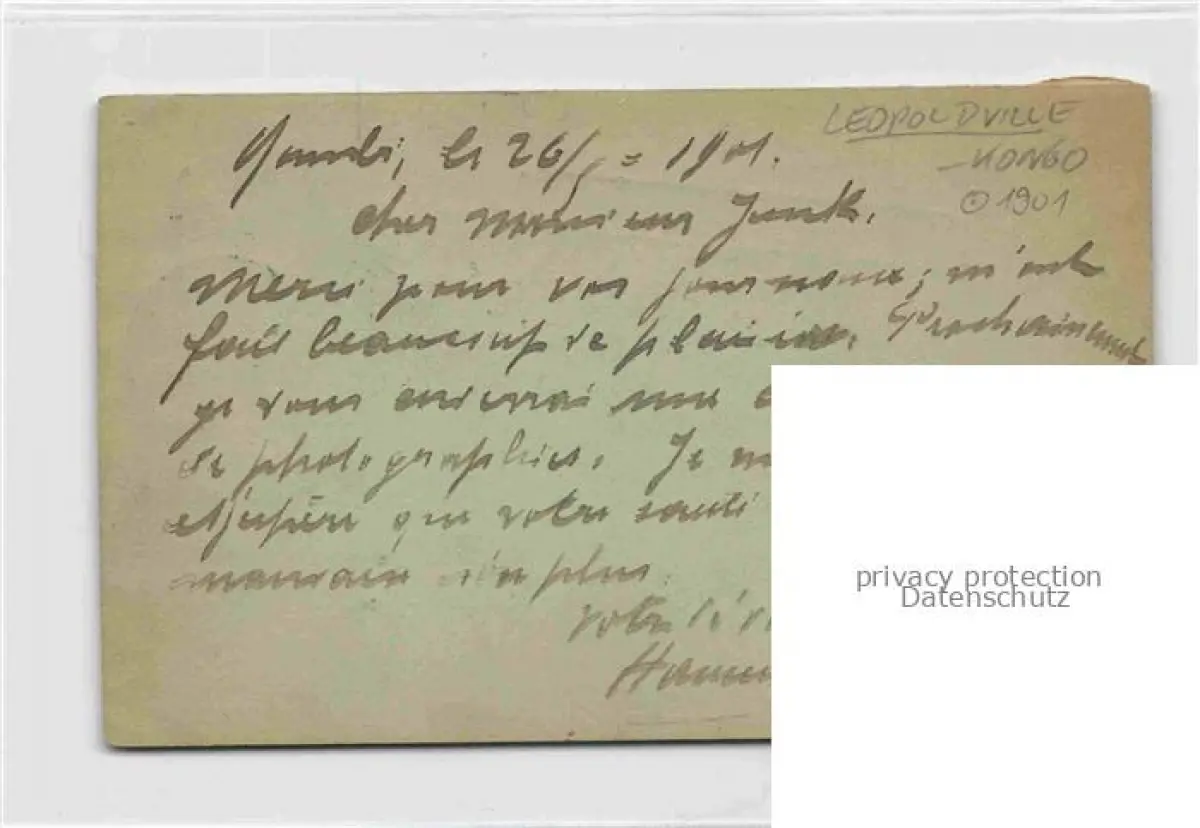 le 26/5 = 1901.
LEOPOLDVILLE
-KONGO
1901
cher Monsieur Junk.
Merci pour vos journaux; m'ont
fait beaucoup de plaisir. Prochainement
je vous enverrai une
de photographies. Je
et j'espère que votre santé
mauvaise non plus.
votre
privacy protection
Datenschutz